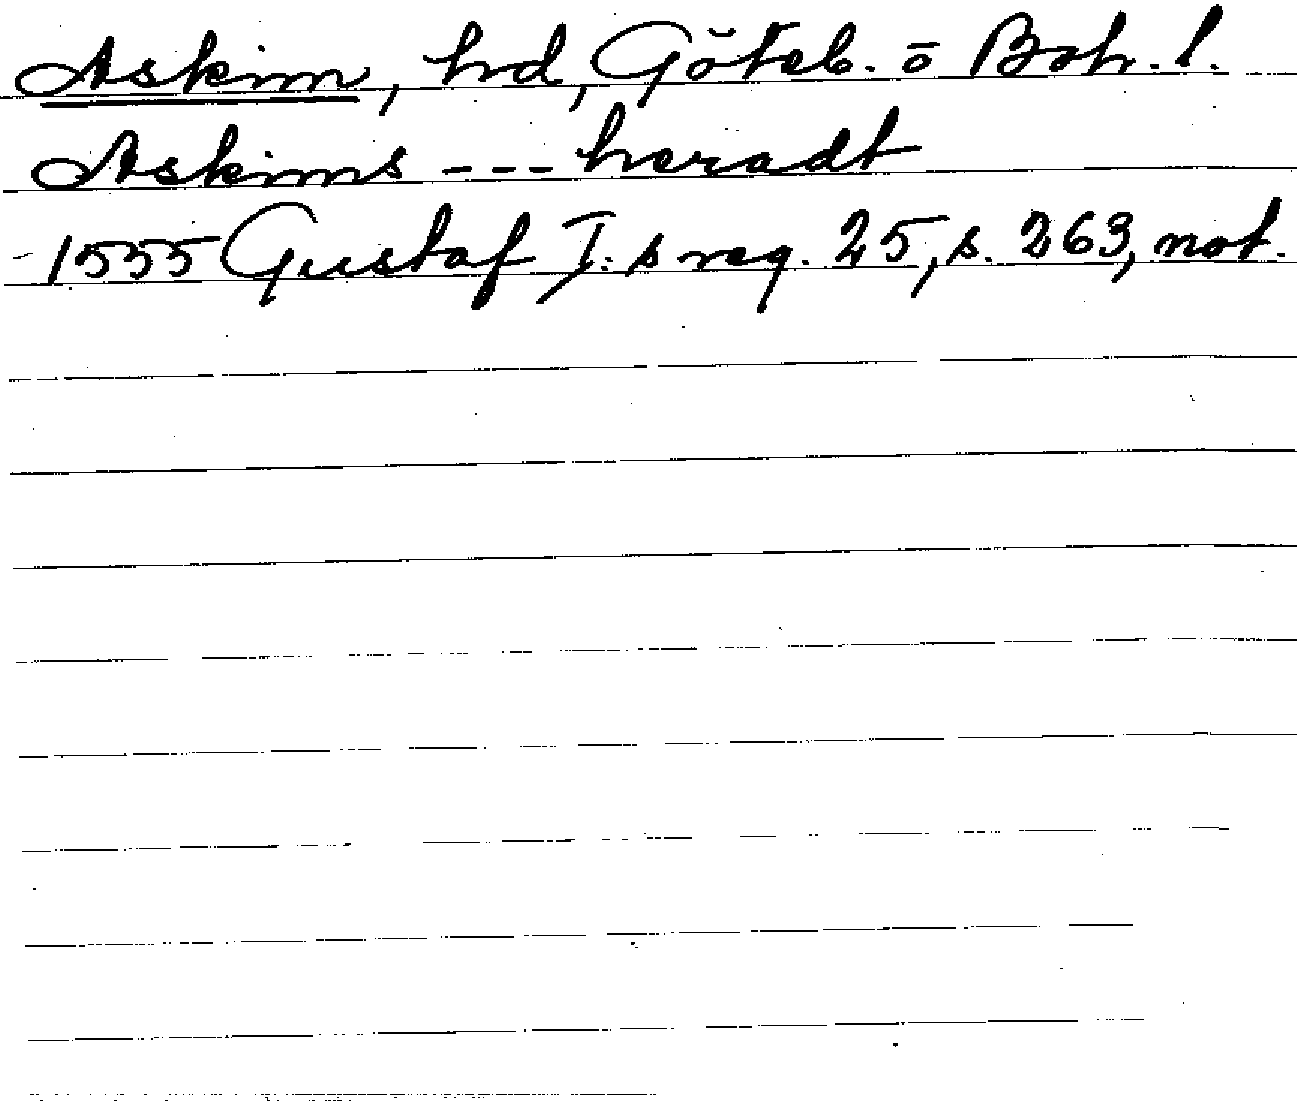 Askim, hd, Göteb. o Boh. l.
Askims --- heradt
1555 Gustaf I:s reg. 25, s. 263, not.